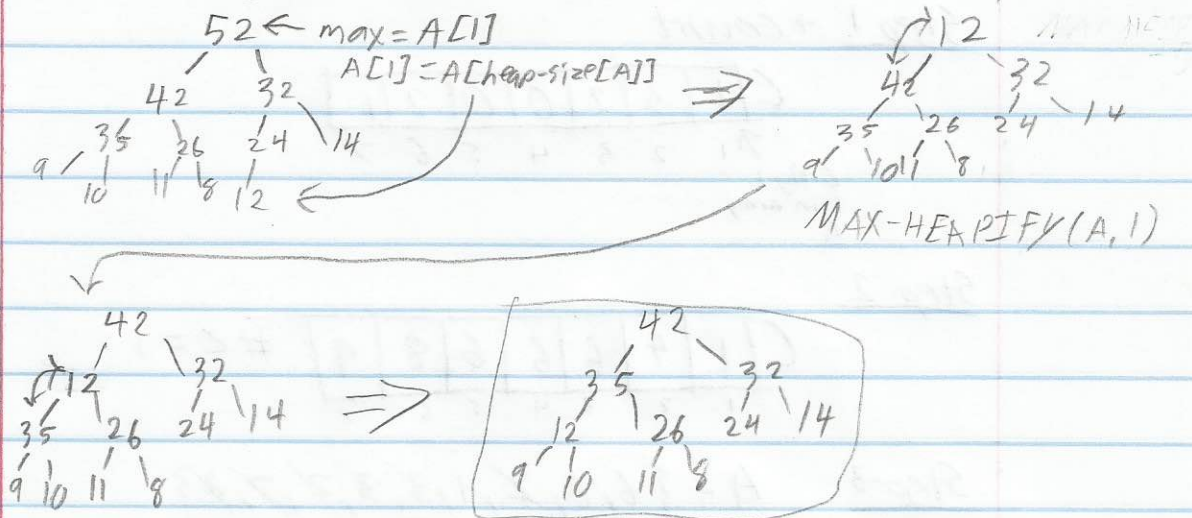 52 ← max = A[1]
A[1] = A[heap-size[A]]
42 32
35 26 24 14
9 10 11 8 12
⇒
12
42 32
35 26 24 14
9 10 11 8
MAX-HEAPIFY(A, 1)
42
12 32
35 26 24 14
9 10 11 8
⇒
42
35 32
12 26 24 14
9 10 11 8